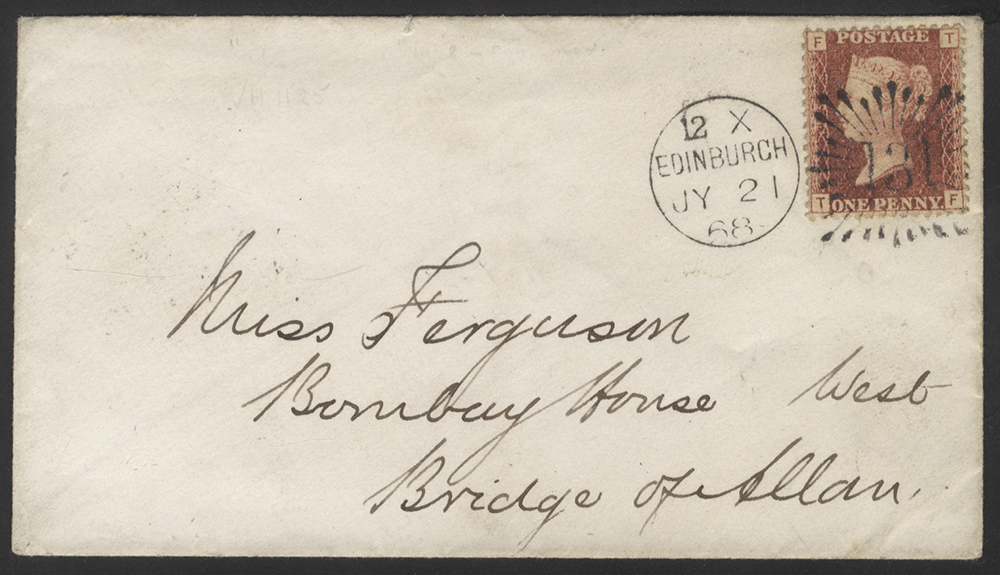 F POSTAGE T
T ONE PENNY F
131
12 X
EDINBURGH
JY 21
68
Miss Ferguson
Bombay House West
Bridge of Allan.